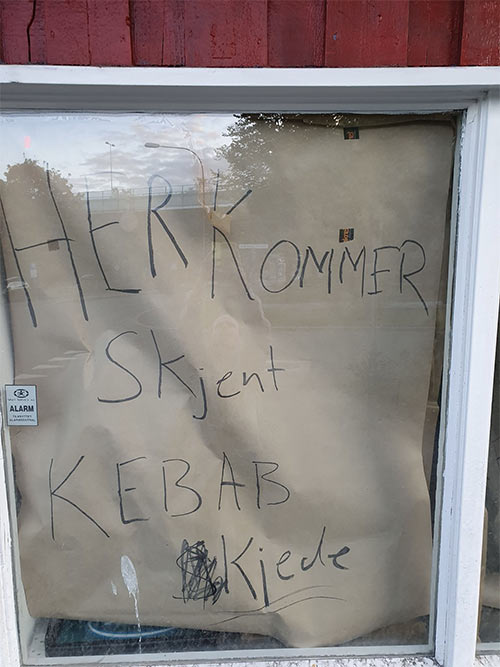 HER KOMMER
Skjent
KEBAB
Kjede
ALARM